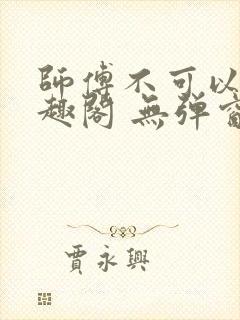 師傅不可以
趣閣 無弹
賈永興